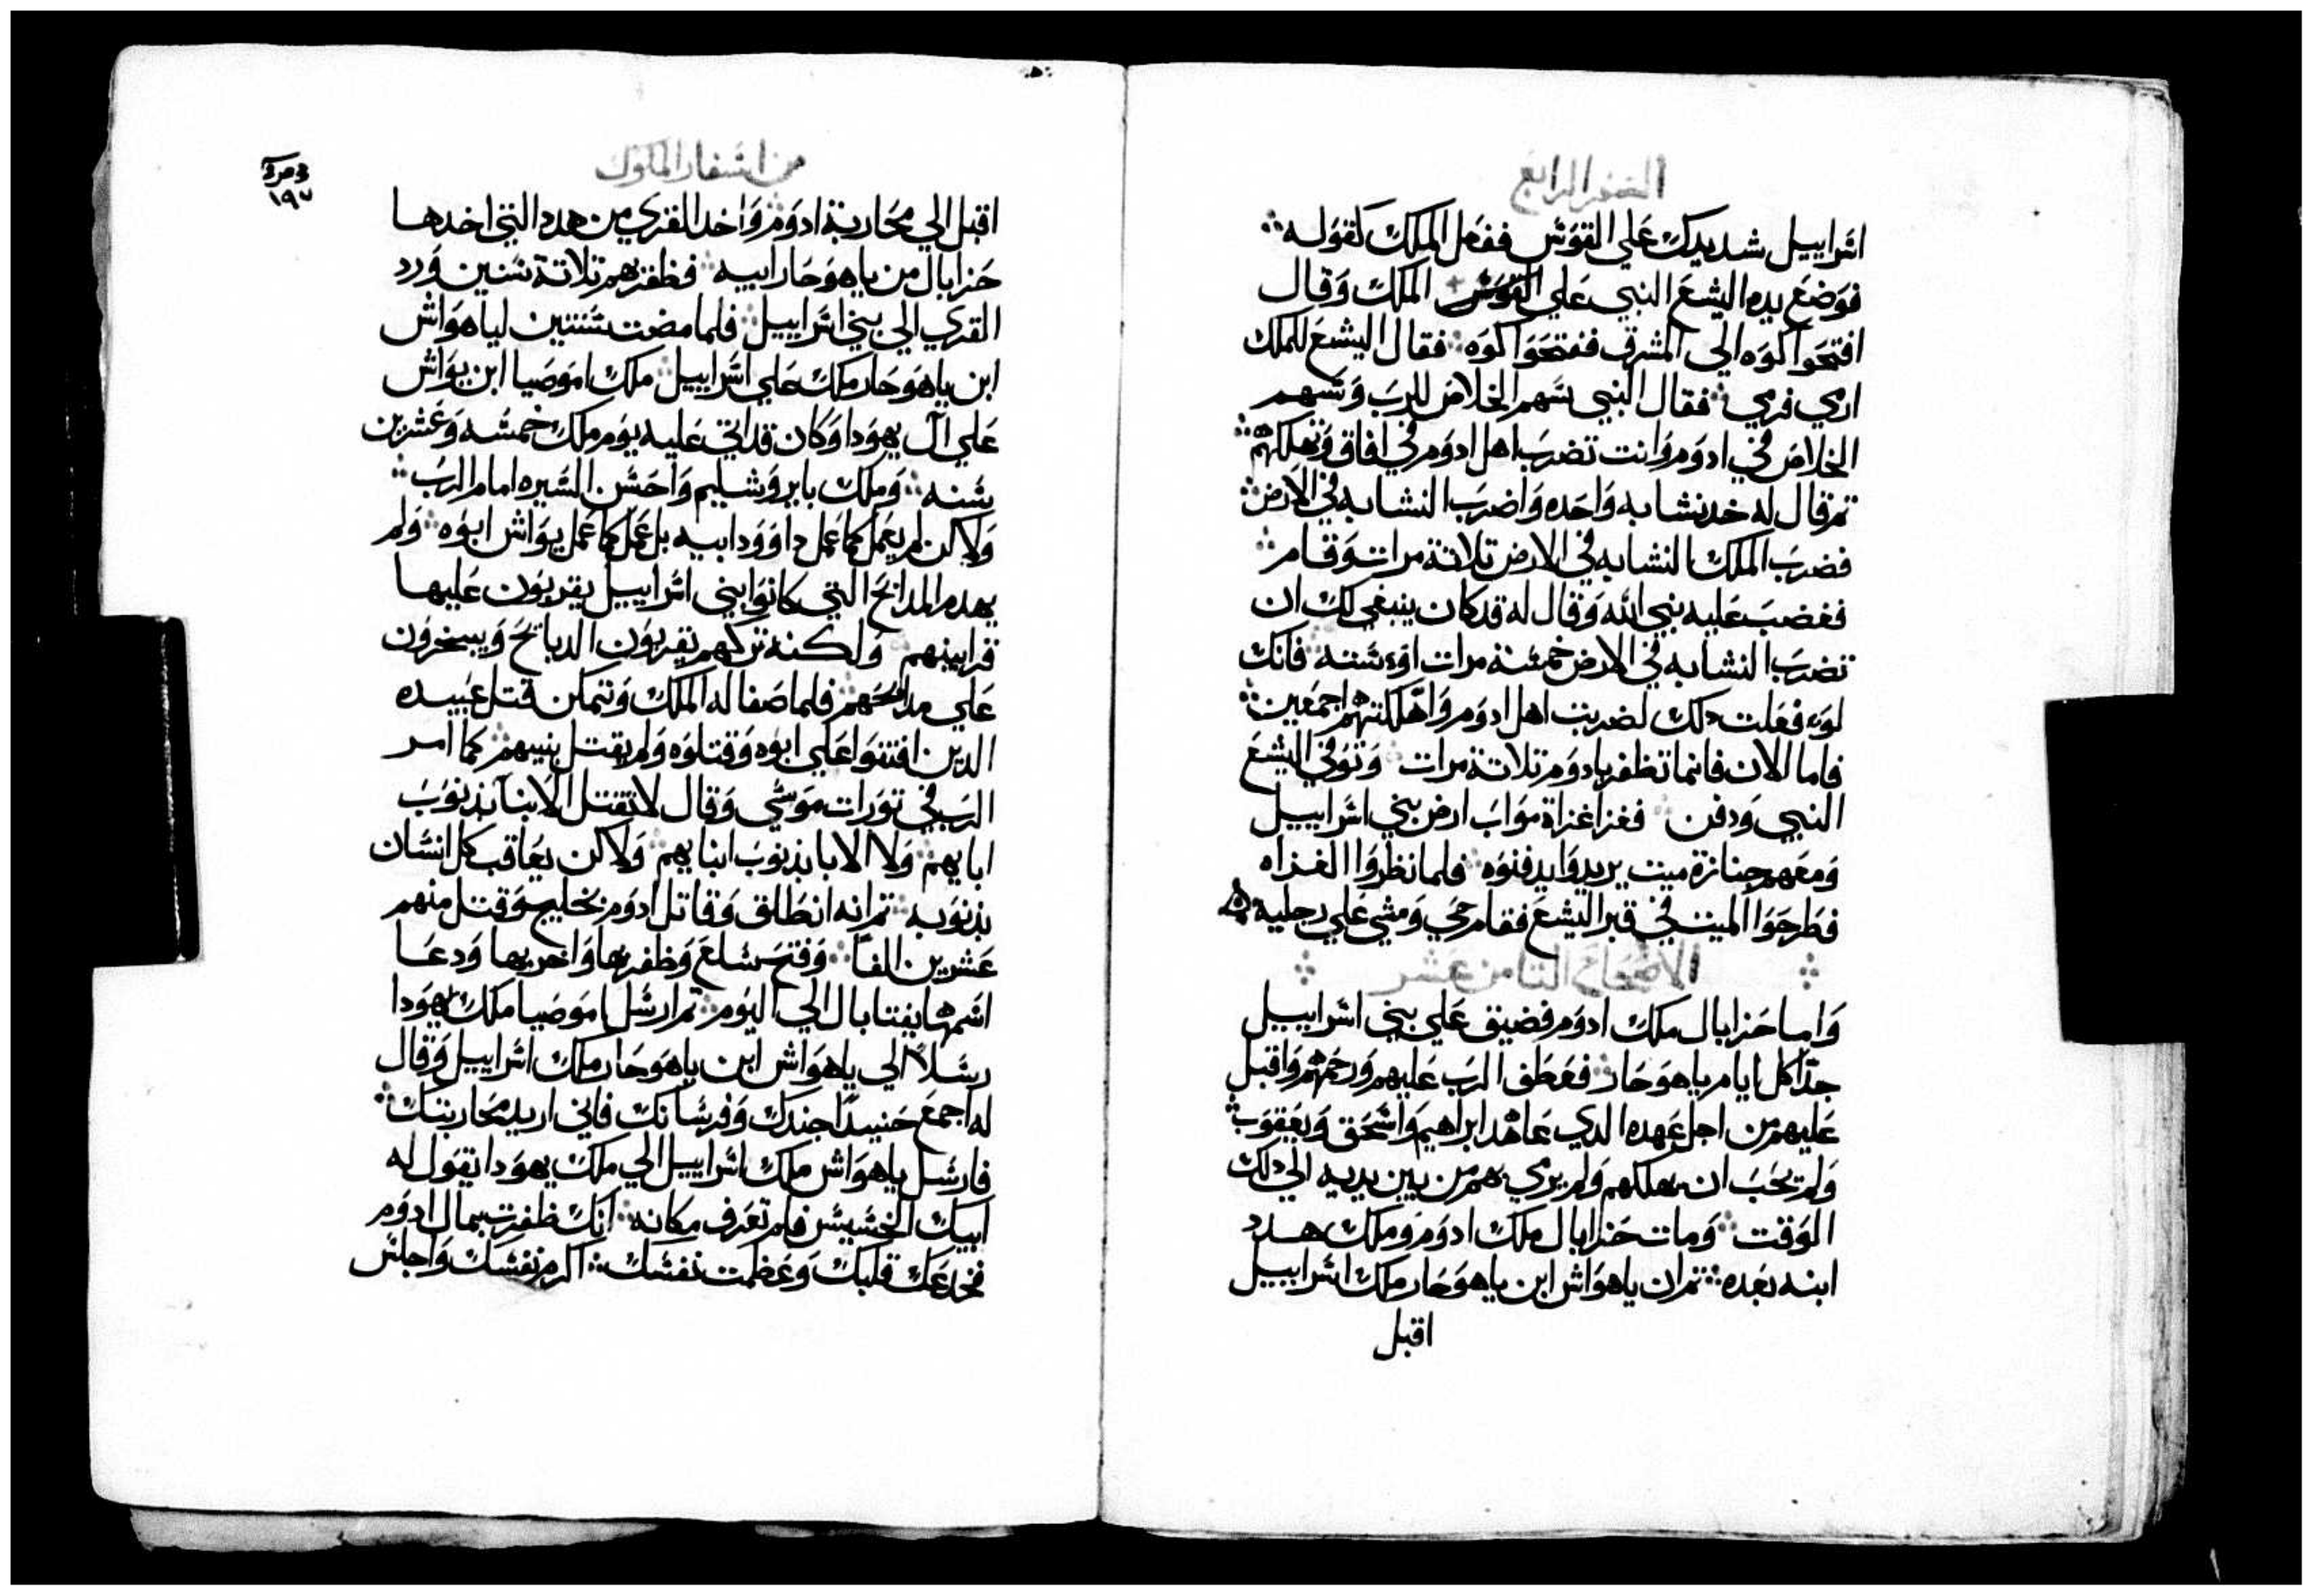 السفر الرابع
اسراييل شد يدك علي القوس ففعل الملك كقوله
فوضع يده اليشع النبي علي القوس الملك وقال
افتحوا كوه الي المشرق ففتحوا كوه فقال اليشع للملك
ارمي فرمي فقال النبي سهم الخلاص للرب وسهم
الخلاص في ادوم وانت تضرب اهل ادوم في افاق وتهلكهم
تم قال له خد نشابه واحده واضرب النشابه في الارض
فضرب الملك النشابه في الارض تلاتة مرات وقام
فغضب عليه نبي الله وقال له قد كان ينبغي لك ان
تضرب النشابه في الارض خمسة مرات اوء سته فانك
لوء فعلت دلك لضربت اهل ادوم واهلكتهم اجمعين
فاما الان فانما تظفر بادوم تلاتة مرات وتوفي اليشع
النبي ودفن فغزا غزاة مواب ارض بني اسراييل
ومعهم جنازة ميت يريدوا يدفنوه فلما نظروا الغزاه
فطرحوا الميت في قبر اليشع فقام حي ومشي علي رجليه
الاصحاح التامن عشر
واما حزابال ملك ادوم فضيق علي بني اسراييل
جدا كل ايام ياهوحاز فعطف الرب عليهم ورحمهم واقبل
عليهم من اجل عهده الدي عاهد ابراهيم واسحق ويعقوب
ولم يحب ان يهلكهم ولم يرمي بهم من بين يديه الي دلك
الوقت ومات حزابال ملك ادوم وملك هدد
ابنه بعده تم ان ياهواش ابن ياهوحاز ملك اسراييل
اقبل
من اسفار الملوك
١٩٧
اقبل الي محاربة ادوم واخد القري من هدد التي اخدها
حزابال من ياهوحاز ابيه فظفر بهم تلاتة سنين ورد
القري الي بني اسراييل فلما مضت سنتين لياهواش
ابن ياهوحاز ملك علي اسراييل ملك اموصيا ابن يواش
علي ال يهودا وكان قد اتي عليه يوم ملك خمسه وعشرين
سنه وملك بايروشليم واحسن السيره امام الرب
ولاكن لم يعمل كما عمل داوود ابيه بل عمل كما عمل يواش ابوه ولم
يهدم المدابح التي كانوا بني اسراييل يقربون عليها
قرابينهم ولكنه تركهم يقربون الدبايح ويبخرون
علي مدابحهم فلما صفا له الملك وتمكن قتل عبيده
الدين افتنوا علي ابوه وقتلوه ولم يقتل بنيهم كما امر
الرب في تورات موسي وقال لا تقتل الابنا بذنوب
ابايهم ولا الابا بذنوب ابنايهم ولاكن يعاقب كل انسان
بذنوبه تم انه انطلق وقاتل ادوم بخليح وقتل منهم
عشرين الفا وفتح سالع وظفر بها واخربها ودعا
اسمها يفتابال الي اليوم تم ارسل اموصيا ملك يهودا
رسلا الي ياهواش ابن ياهوحاز ملك اسراييل وقال
له اجمع حنيدا جندك وفرسانك فاني اريد محاربتك
فارسل ياهواش ملك اسراييل الي ملك يهودا يقول له
ابيك الخسيس فلم تعرف مكانه انك ظفرت بمال ادوم
فخدعك قلبك وعظمت نفسك اكرم نفسك واجلس